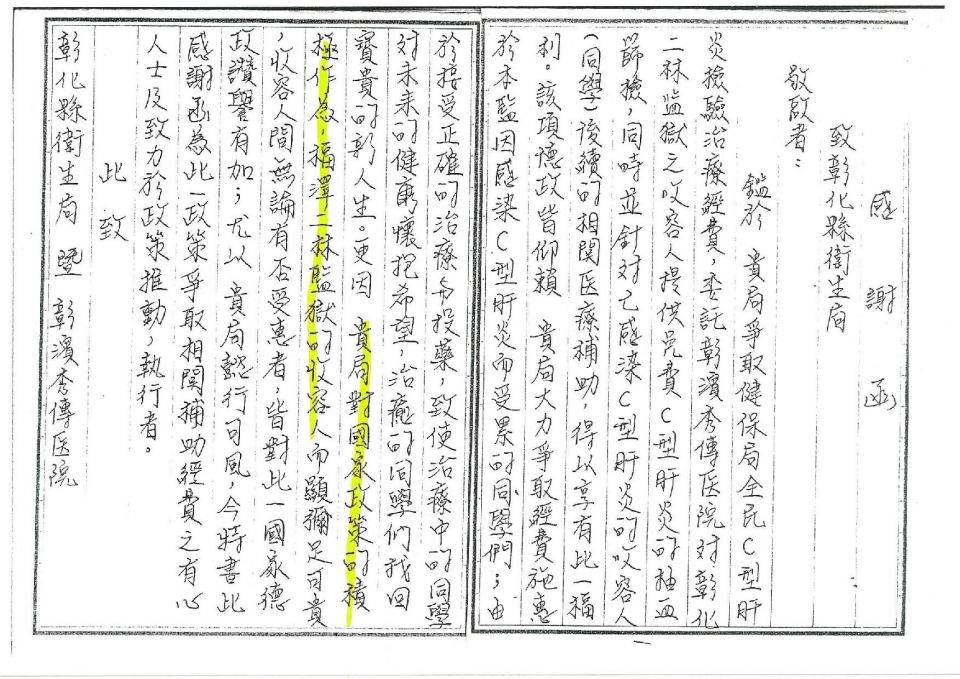 感謝函
致彰化縣衛生局
敬啟者：
鑑於　貴局爭取健保局全民C型肝
炎檢驗治療經費，委託彰濱秀傳医院对彰化
二林監獄之收容人提供免費C型肝炎的抽血
篩檢，同時並針对已感染C型肝炎的收容人
（同學）後續的相関医療補助，得以享有此一福
利。該項德政皆仰賴　貴局大力爭取經費施惠
於本監因感染C型肝炎而受累的同學們；由
於接受正確的治療与投藥，致使治療中的同學
对未來的健康懷抱希望，治癒的同學們找回
寶貴的彩人生。更因　貴局對國家政策的積
極作為，福澤二林監獄的收容人而顯彌足可貴
，收容人間無論有否受惠者，皆對此一國家德
政讚譽有加；尤以　貴局懿行可風，今特書此
感謝函為此一政策爭取相関補助經費之有心
人士及致力於政策推動，執行者。
此致
彰化縣衛生局　暨　彰濱秀傳医院